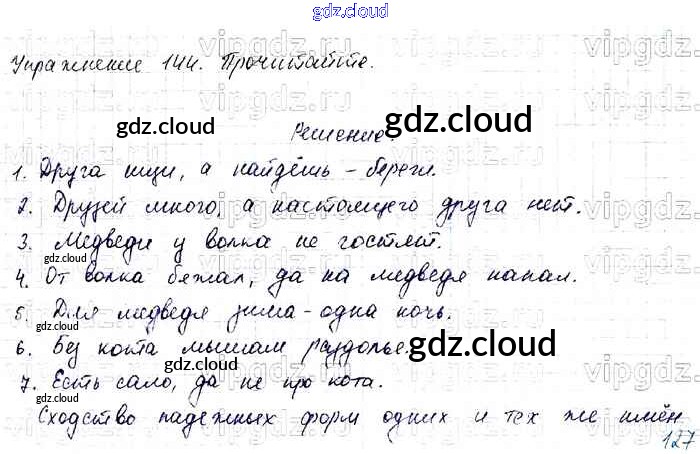 gdz.cloud
Упражнение 144. Прочитайте.
vipgdz.cloud
gdz.cloud gdz.cloud
Решение.
1. Друга ищи, а найдёшь – береги.
2. Друзей много, а настоящего друга нет.
3. Медведи у волка не гостят.
gdz.cloud
4. От волка бежал, да на медведя напал.
5. Для медведя зима – одна ночь.
gdz.cloud
6. Без кота мышам раздолье.
gdz.cloud gdz.cloud
7. Есть сало, да не про кота.
gdz.cloud
Сходство падежных форм одних и тех же имён
127